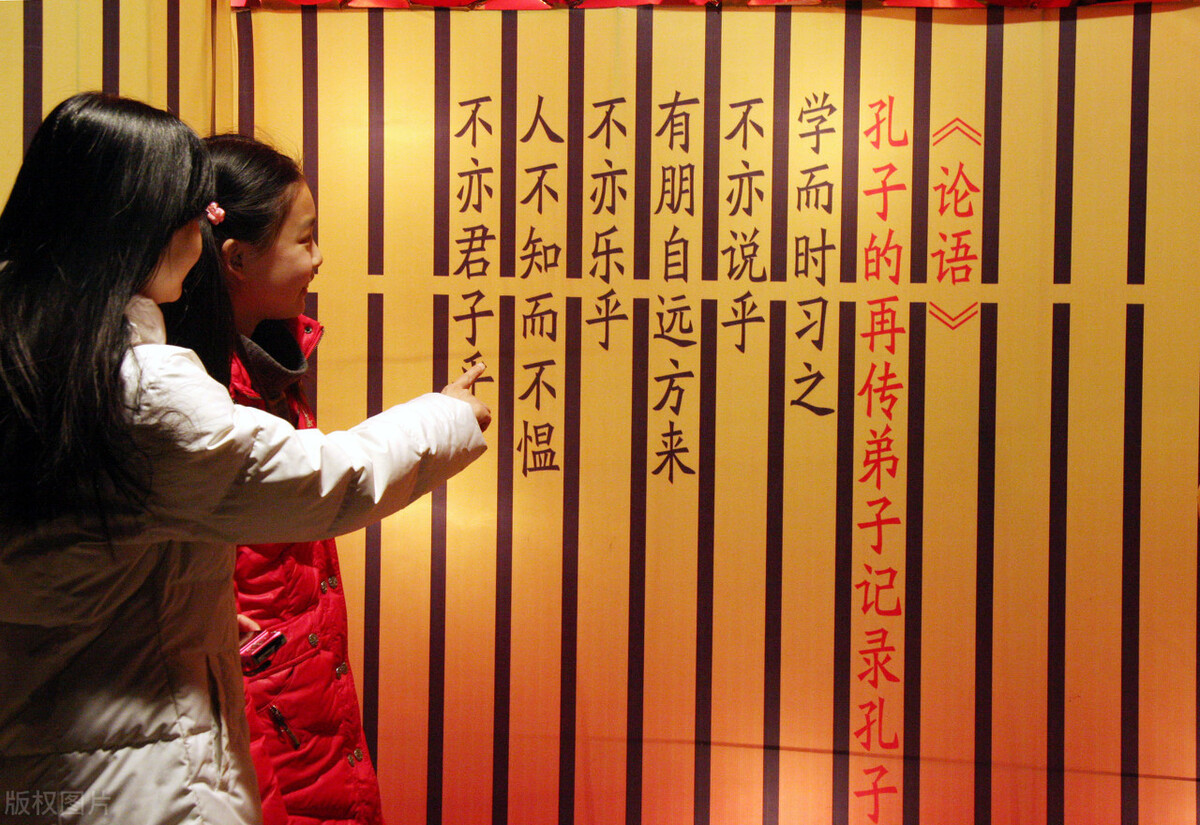 《论语》
孔子的再传弟子记录孔子
学而时习之
不亦说乎
有朋自远方来
不亦乐乎
人不知而不愠
不亦君子乎
版权图片